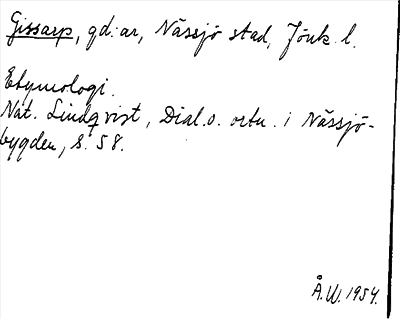 Gissarp, gd:ar, Nässjö stad, Jönk. l.
Etymologi.
Nat. Lindqvist, Dial.o. ortn. i Nässjö-
bygden, s. 58.
Å.W. 1954.